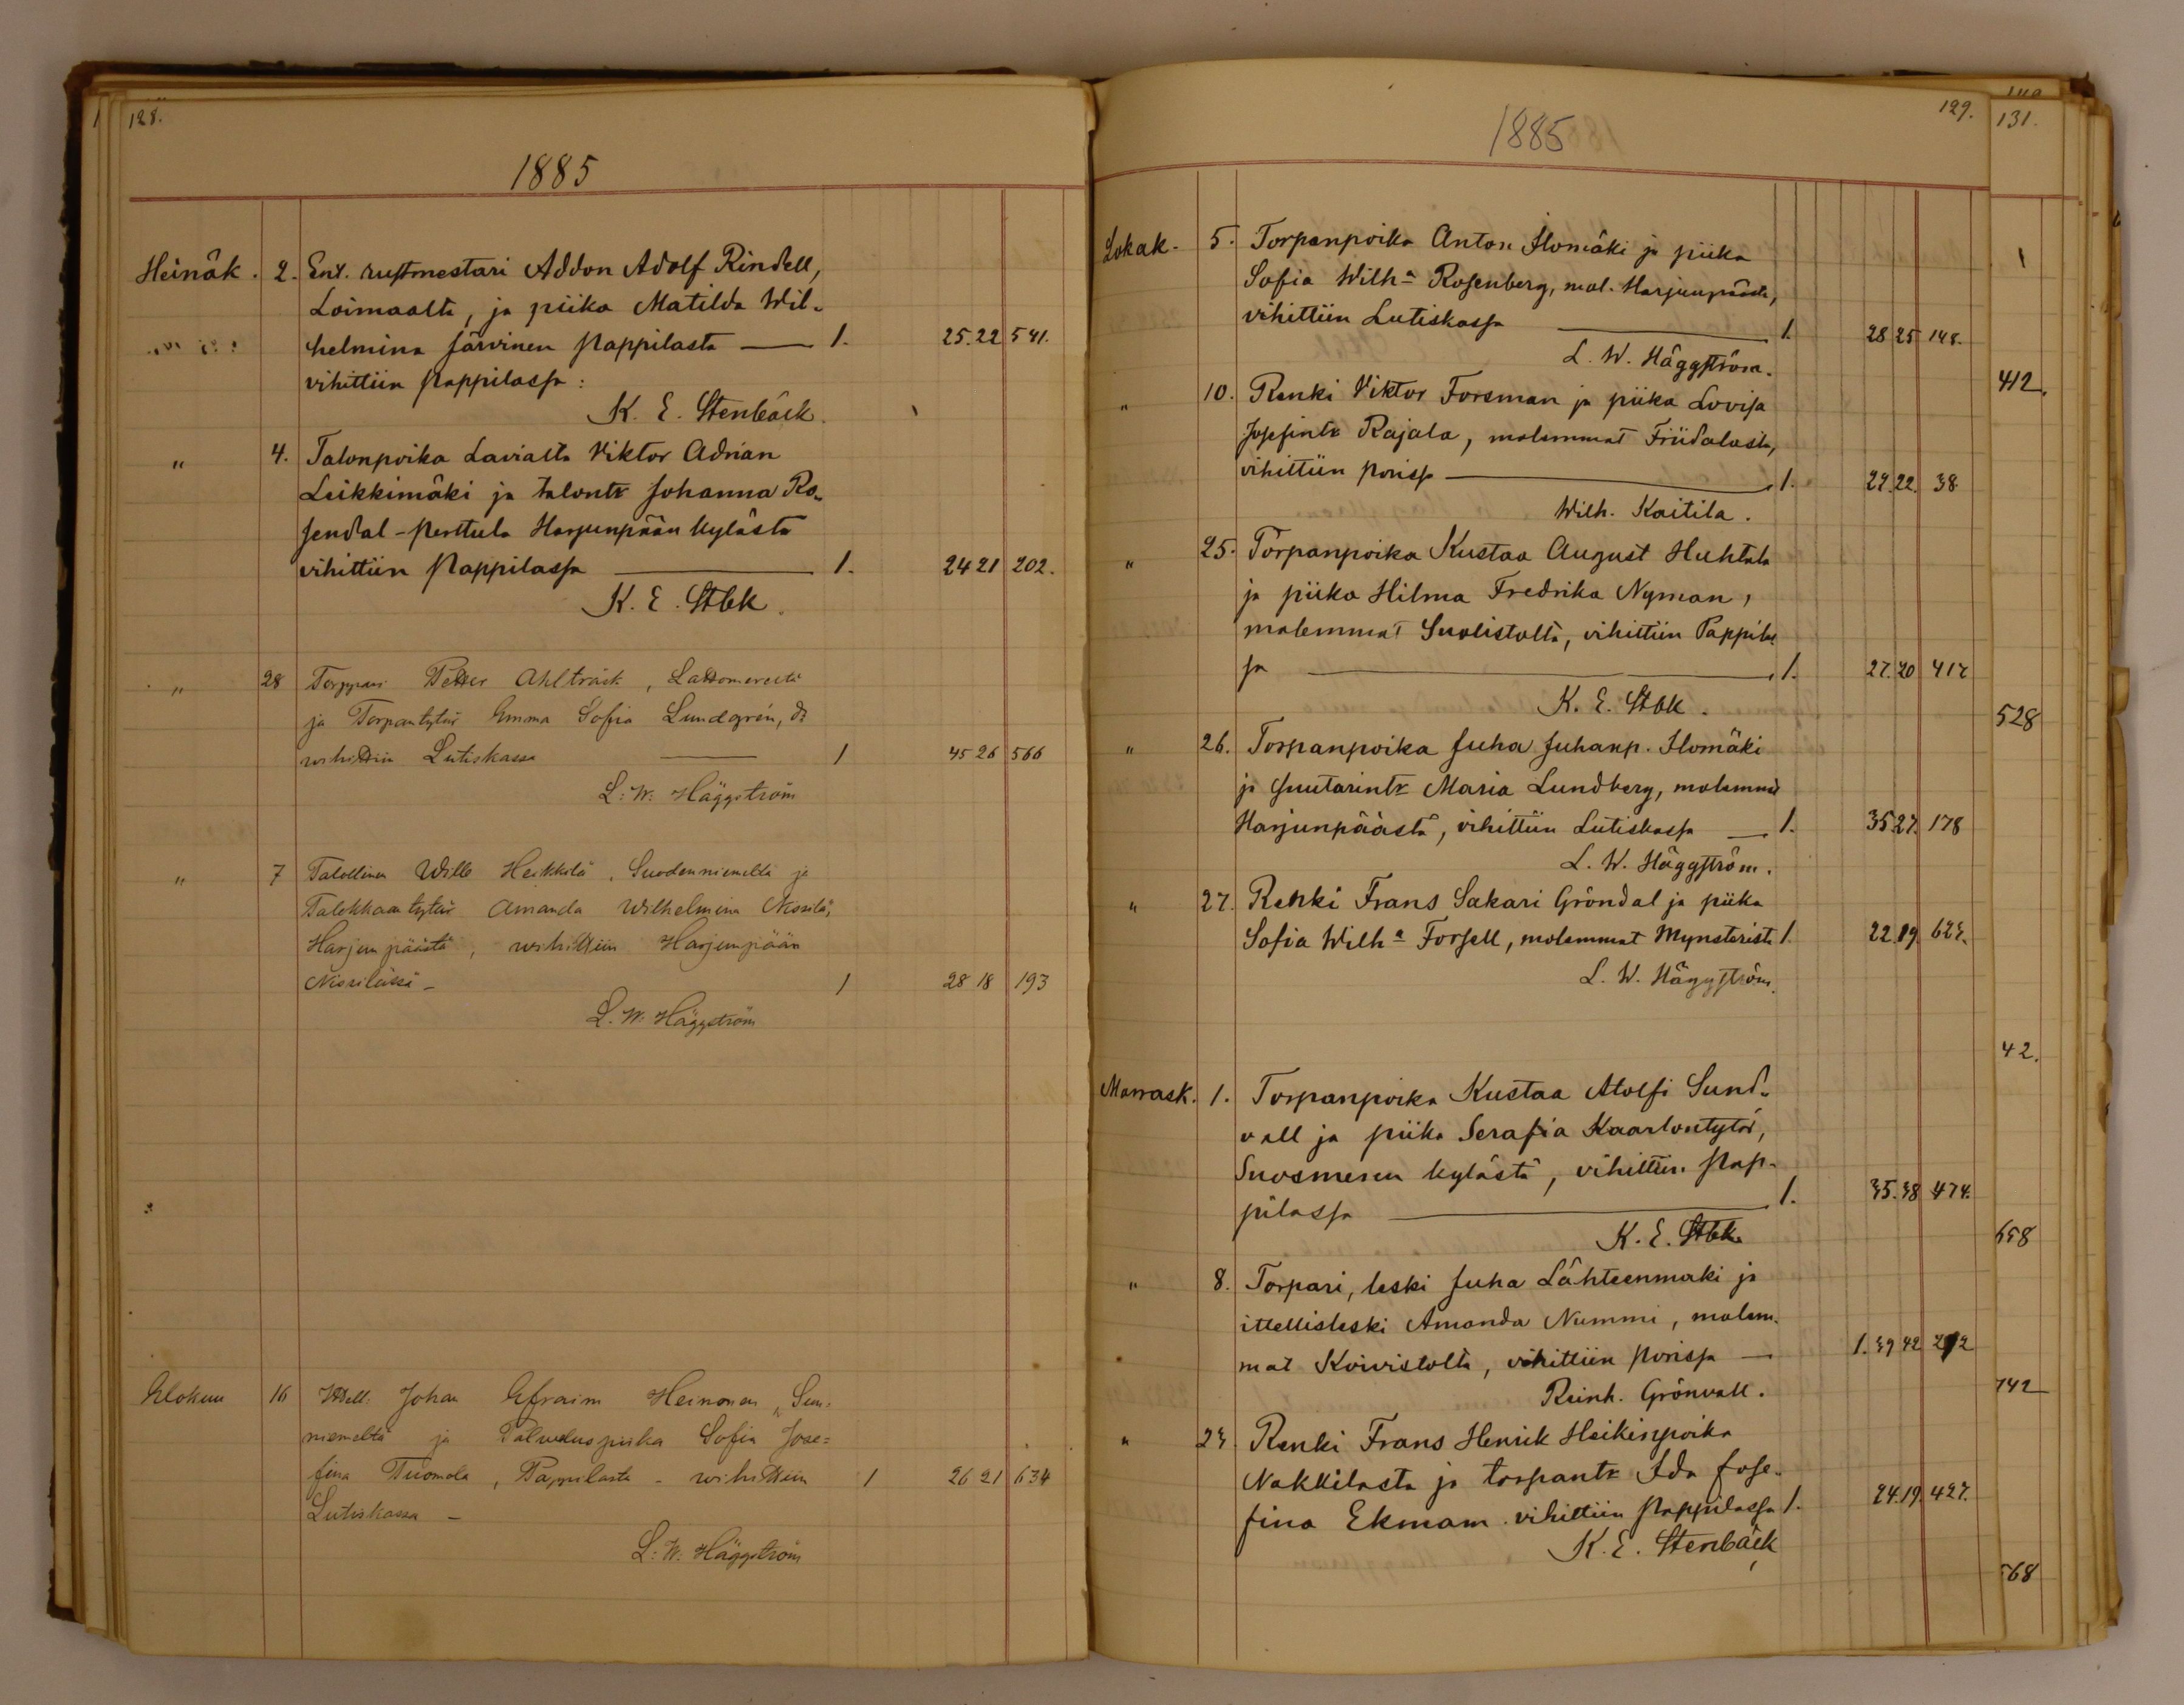 128.
1885
Heinäk. 2. Ent. rustmestari Addon Adolf Rindell,
Loimaalta, ja piika Matilda Wil-
helmina Järvinen Pappilasta — 1. 25.22 541.
vihittiin Pappilassa:
K. E. Stenbäck.
" 4. Talonpoika Lavialta Viktor Adrian
Leikkimäki ja talontr Johanna Ro-
sendal-Perttula Harjunpään kylästä
vihittiin Pappilassa — 1. 24 21 202.
K. E. Stbk.
" 28 Torppari Petter Ahlträsk, Lattomerestä
ja Torpantytär Emma Sofia Lundgrén, d:
wihittiin Lutiskassa — 1 45 26 566
L. W. Häggström
" 7 Talollinen Wille Heikkilä, Suodenniemeltä ja
Talokkaan tytär Amanda Wilhelmina Nissilä,
Harjunpäästä, wihittiin Harjunpään
Nissilässä – 1 28 18 193
L. W. Häggström
Elokuu 16 Ittell. Johan Efraim Heinonen, Suu-
niemeltä ja Palveluspiika Sofia Jose=
fina Tuomola, Pappilasta – wihittiin 1 26 21 634
Lutiskassa –
L. W. Häggström
129.
1885
Lokak. 5. Torpanpoika Anton Ilomäki ja piika
Sofia Wilha Rosenberg, mol. Harjunpäästä,
vihittiin Lutiskassa — 1. 28 25 148.
L. W. Häggström.
" 10. Renki Viktor Forsman ja piika Lovisa
Josefintr Rajala, molemmat Friidalasta,
vihittiin Porissa — 1. 29.22. 38
Wilh. Kaitila.
" 25. Torpanpoika Kustaa August Huhtala
ja piika Hilma Fredrika Nyman,
molemmat Suolistolta, vihittiin Pappilas
sa — 1. 27.20 417
K. E. Stbk.
" 26. Torpanpoika Juha Juhanp. Ilomäki
ja suutarintr Maria Lundberg, molemmat
Harjunpäästä, vihittiin Lutiskassa — 1. 35 27. 178
L. W. Häggström.
" 27. Renki Frans Sakari Gröndal ja piika
Sofia Wilha Forsell, molemmat Mynsteristä 1. 22.19.
L. W. Häggström.
Marrask. 1. Torpanpoika Kustaa Atolfi Sund-
vall ja piika Serafia Kaarlontytär,
Suosmeren kylästä, vihittiin Pap-
pilassa — 1. 35.38 474.
K. E. Stbk.
" 8. Torpari, leski Juha Lähteenmäki ja
ittellisleski Amanda Nummi, molem-
mat Koivistolta, vihittiin Porissa — 1. 39 42
Reinh. Grönvall.
" 23 Renki Frans Henrik Heikinpoika
Nakkilasta ja torpantr Ida Jose-
fina Ekmam. vihittiin Pappilassa 1. 24.19. 427.
K. E. Stenbäck
131.
412.
528
42.
658
742
568